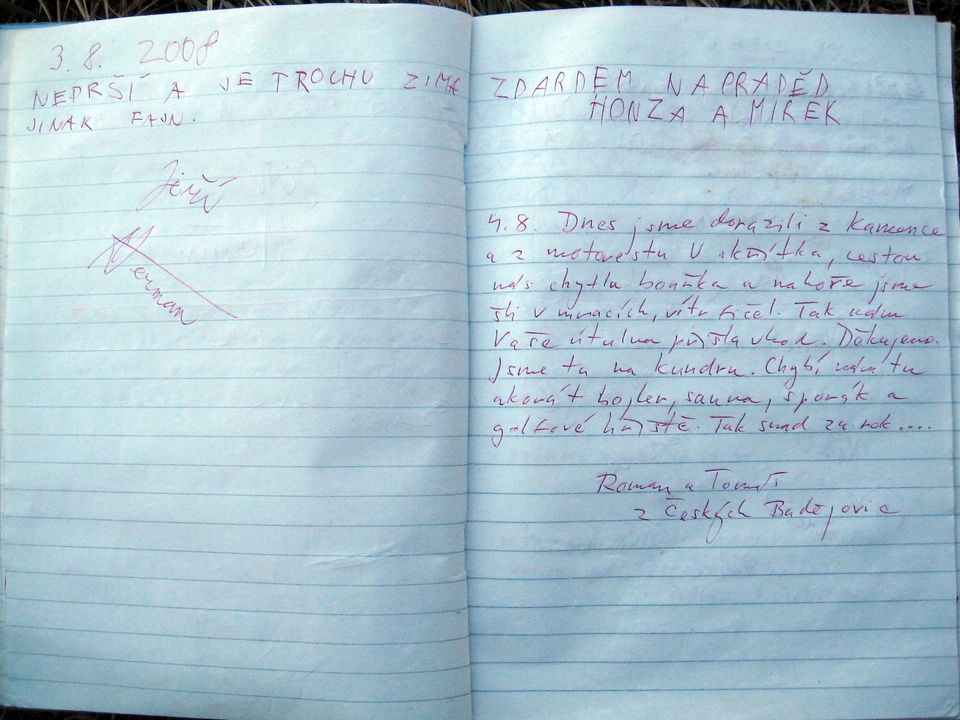 3. 8. 2008
NEPRŠÍ A JE TROCHU ZIMA
JINAK FAJN.
Jiří
Herman
ZDARDEM NA PRADĚD
HONZA A MIREK
4. 8. Dnes jsme dorazili z Kamence
a z motorestu U skřítka, cestou
nás chytla bouřka a nahoře jsme
šli v mracích, vítr fičel. Tak nám
Vaše útulna přišla vhod. Děkujeme.
Jsme tu na kundru. Chybí nám tu
akorát bojler, sauna, sporák a
golfové hřiště. Tak snad za rok....
Roman a Tomáš
z Českých Budějovic